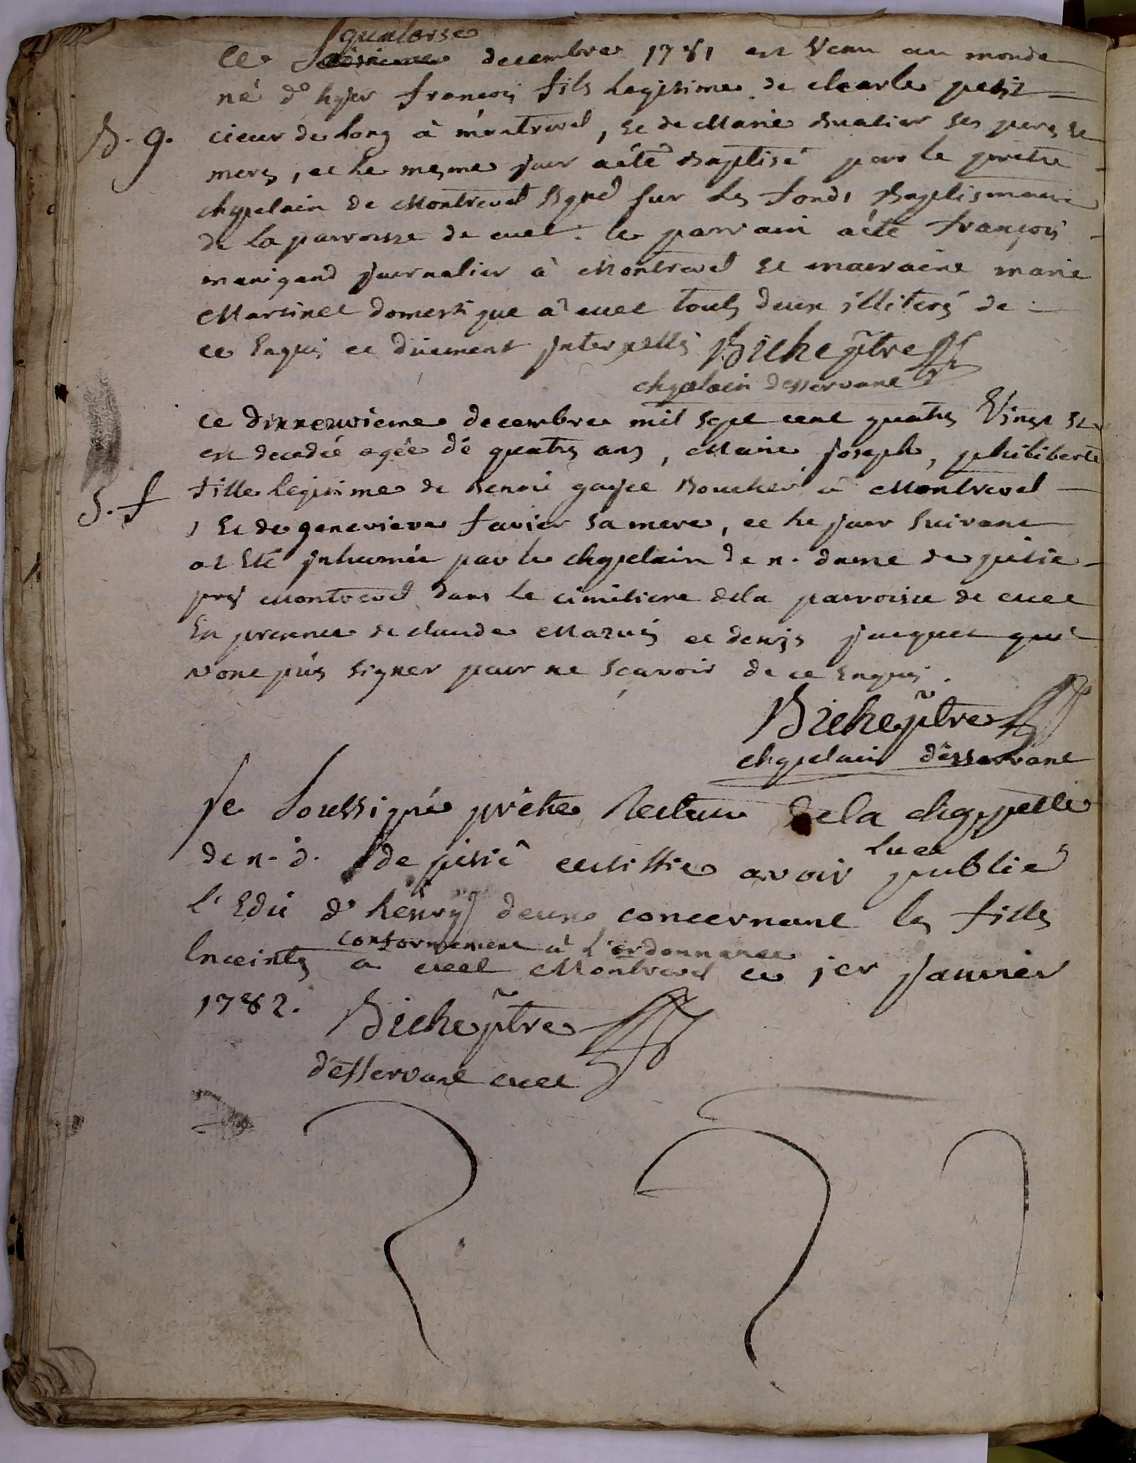 quatorse
Ce decembre 1781 est Venu au monde
né d'hyer françois fils legitime de charle petit
B. g. cieur de long à montrevel, et de Marie Sualier ses pere et
mere, et le mesme jour aété Baptisé par le pretre
chapelain de Montrevel signé sur les fonds Baptismaux
de la parroisse de cuet. le parrain aété françois
manigand journalier à Montrevel et marraine marie
Martinet domestique a cuet touts deux illiterés de
ce Enquis et düement interpellés Biche ptre
chapelain desservant
Ce dixneuvieme decembre mil sept cent quatre Vingt et
est decedée agée de quatre ans, Marie joseph, philiberte
S. f fille legitime de Benoit goyet Boucher à Montrevel
, et de genevieve favier sa mere, et le jour suivant
at Eté inhumée par le chapelain de n. dame de pitié
près Montrevel dans le cimitiere dela parroisse de cuet
En presence de claude Marvis et denis jacquet qui
n'ont pûs signer pour ne sçavoir de ce Enquis.
Biche ptre
chapelain désservant
Je soussigné prêtre Recteur de la chappelle
de n. d. de pitié certiffie avoir publié
lu et
l'Edit d'henry deux concernant les filles
conformement à l'ordonnance
Enceintes a cuet Montrevel ce 1er janvier
1782. Biche ptre
désservant cuet